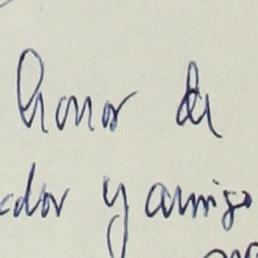 honor de
ador y amigo